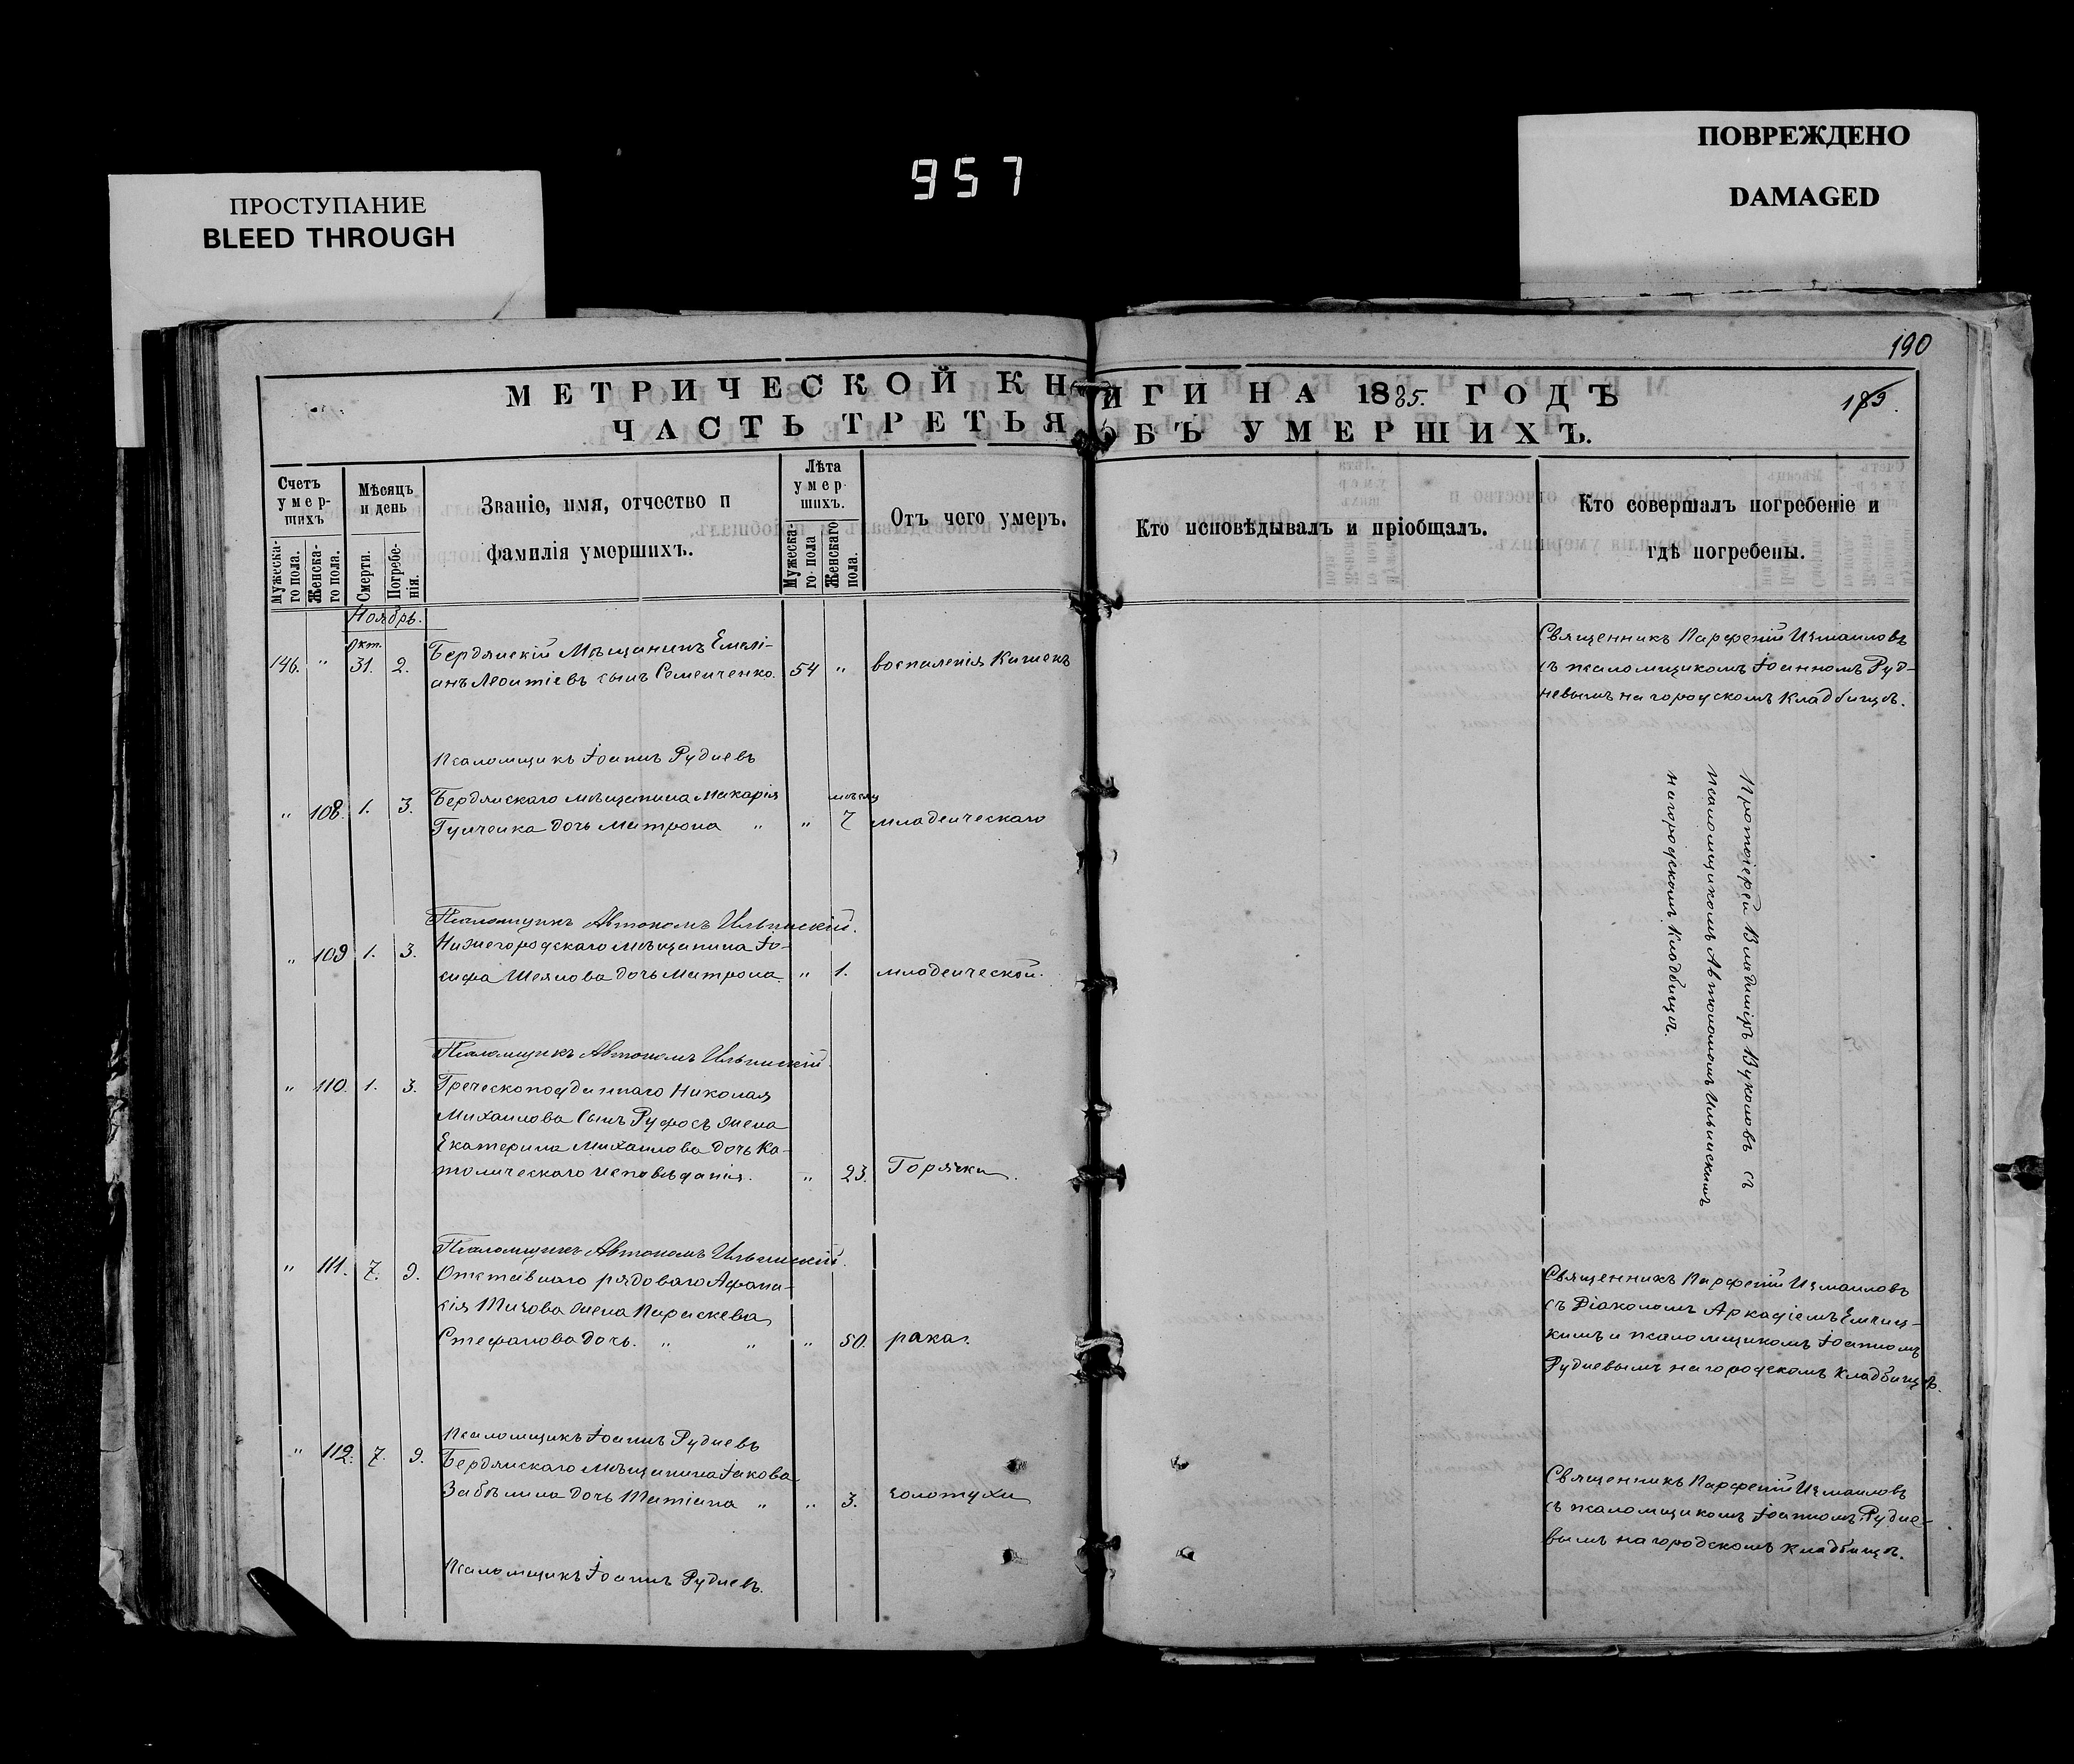 957
ПРОСТУПАНИЕ
BLEED THROUGH
ПОВРЕЖДЕНО
DAMAGED
190
МЕТРИЧЕСКОЙ КНИГИ НА 1885. ГОДЪ
189.
ЧАСТЬ ТРЕТЬЯ ОБЪ УМЕРШИХЪ.
Счетъ умер-шихъ
Мужеска-го пола.
Женска-го пола.
Мѣсяцъ и день
Смерти.
Погребе-нія.
Званіе, имя, отчество и
фамилія умершихъ.
Лѣта умер-шихъ.
Мужеска-го пола
Женскаго пола.
Отъ чего умеръ.
Кто исповѣдывалъ и пріобщалъ.
Кто совершалъ погребеніе и
гдѣ погребены.
Ноябрь.
Окт.
146. " 31. 2. Бердянскій Мѣщанинъ Емелі-
анъ Леонтіевъ сынъ Семенченко. 54 " воспаленія Кишекъ
Священникъ Парфеній Измаиловъ
съ псаломщикомъ Іоанномъ Руд-
невымъ на городскомъ Кладбищѣ.
Псаломщикъ Іоаннъ Рудневъ
" 108. 1. 3. Бердянскаго мѣщанина Макарія
дочь Матрона " " мѣсяц 7 младенческаго
Псаломщикъ Автономъ Ильинскій.
" 109 1. 3. Нижегородскаго мѣщанина Іо-
сифа Шеялова дочь Матрона. " 1. младенческой.
Псаломщикъ Автономъ Ильинскій.
" 110. 1. 3. Греческоподданнаго Николая
Михаилова сынъ Руфосъ жена
Екатерина Михаилова дочь Ка-
толическаго исповѣданія. " 23. Горячки.
Протоіерей Владиміръ Вуколовъ съ
псаломщикомъ Автономомъ Ильинскимъ
на городскомъ Кладбищѣ.
Псаломщикъ Автономъ Ильинскій.
" 111. 7. 9. Отставнаго рядоваго Афана-
сія Тичова жена Параскева
Стефанова дочь. " " " 50. рака.
Священникъ Парфеній Измаиловъ
съ Діакономъ Аркадіемъ
кимъ и псаломщикомъ Іоанномъ
Рудневымъ на городскомъ Кладбищѣ.
Псаломщикъ Іоаннъ Рудневъ
" 112. 7. 9. Бердянскаго Мѣщанина Іакова
Забѣлина дочь Татіана " " 3. золотухи
Священникъ Парфеній Измаиловъ
съ псаломщикомъ Іоанномъ Рудне-
вымъ на городскомъ Кладбищѣ.
Псаломщикъ Іоаннъ Рудневъ.